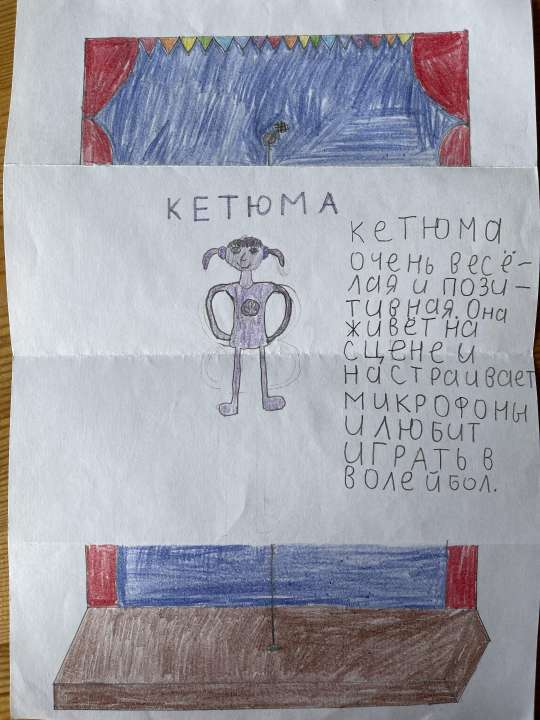 КЕТЮМА
КЕТЮМА
ОЧЕНЬ ВЕСЁ-
ЛАЯ И ПОЗИ-
ТИВНАЯ. Она
ЖИВЁТ НА
СЦЕНЕ И
НАСТРАИВАЕТ
МИКРОФОНЫ
И ЛЮБИТ
ИГРАТЬ В
ВОЛЕЙБОЛ.